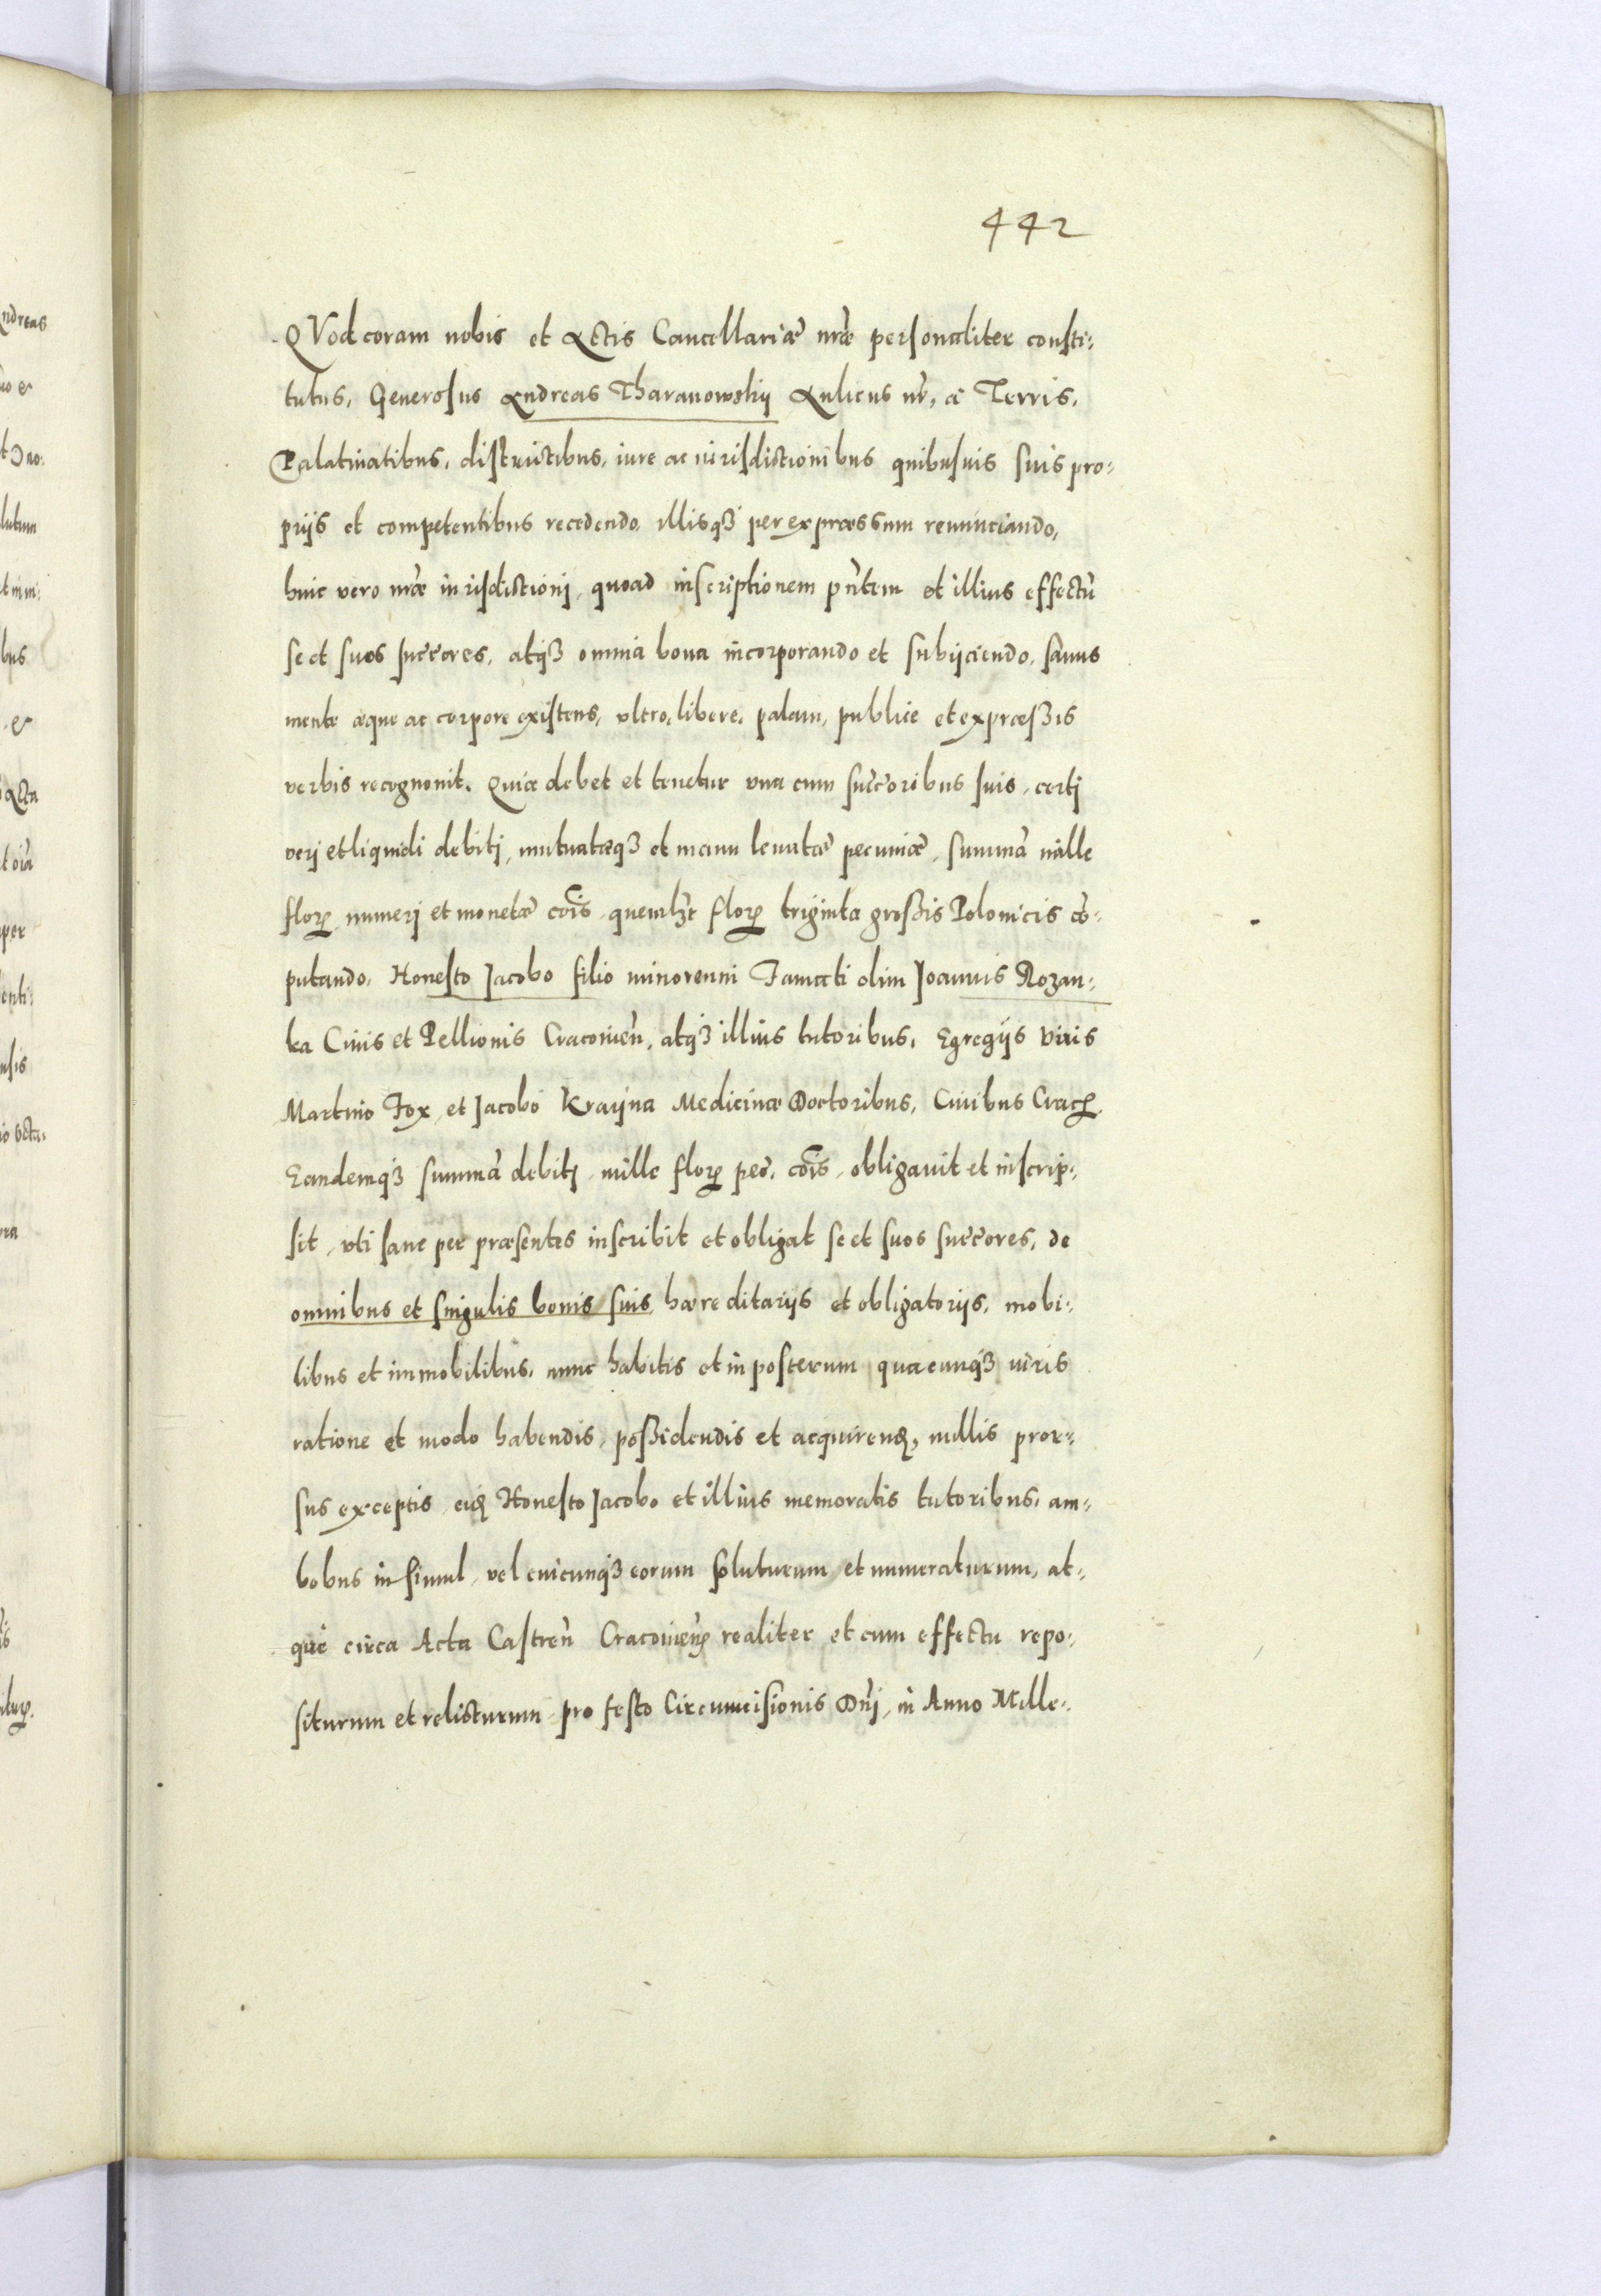 442
QVod coram nobis et Actis Cancellariæ nr̃æ personaliter consti-
tutus, Generosus Andreas Tharanowskij Aulicus nr̃, a Terris,
Palatinatibus, districtibus, iure ac iurisdictionibus quibusuis suis pro-
prijs et competentibus recedendo, illisq́ꝫ per expræssum renunciando,
huic vero nr̃æ iurisdictionj, quoad inscriptionem pñtem et illius effectũ
se et suos succ̃ores, atq́ꝫ omnia bona incorporando et subijciendo, sanus
mente æque ac corpore existens, vltro, libere, palam, publice et expræßis
verbis recognouit. Quia debet et tenetur vna cum succ̃oribus suis, certj
verj et liquidi debitj, mutuatæq́ꝫ et manu leuatæ pecuniæ, summã mille
florꝝ numerj et monetæ cõis, quemlꝫt florꝝ triginta großis Polonicis cõ-
putando, Honesto Jacobo filio minorenni Famati olim Joannis Rozan-
ka Ciuis et Pellionis Cracouieñ, atq́ꝫ illius tutoribus, Egregijs Viris
Martino Fox, et Jacobo Krayna Medicinæ Doctoribus, Ciuibus Cracꝫ.
Eandemq́ꝫ summã debitj, mille florꝝ pec̃. cõis, obligauit et inscrip-
sit, vti sane per præsentes inscribit et obligat se et suos succ̃ores, de
omnibus et singulis bonis suis hæreditarijs et obligatorijs, mobi-
libus et immobilibus, nunc habitis et in posterum quacunq́ꝫ iuris
ratione et modo habendis, poßidendis et acquirenꝭ, nullis pror-
sus exceptis, eiꝭ Honesto Jacobo et illius memoratis tutoribus, am-
bobus in simul, vel cuicunq́ꝫ eorum soluturum et numeraturum, at-
que circa Acta Castreñ Cracouieñ realiter et cum effectu repo-
siturum et relicturum pro festo Circumcisionis Dñj, in Anno Mille-